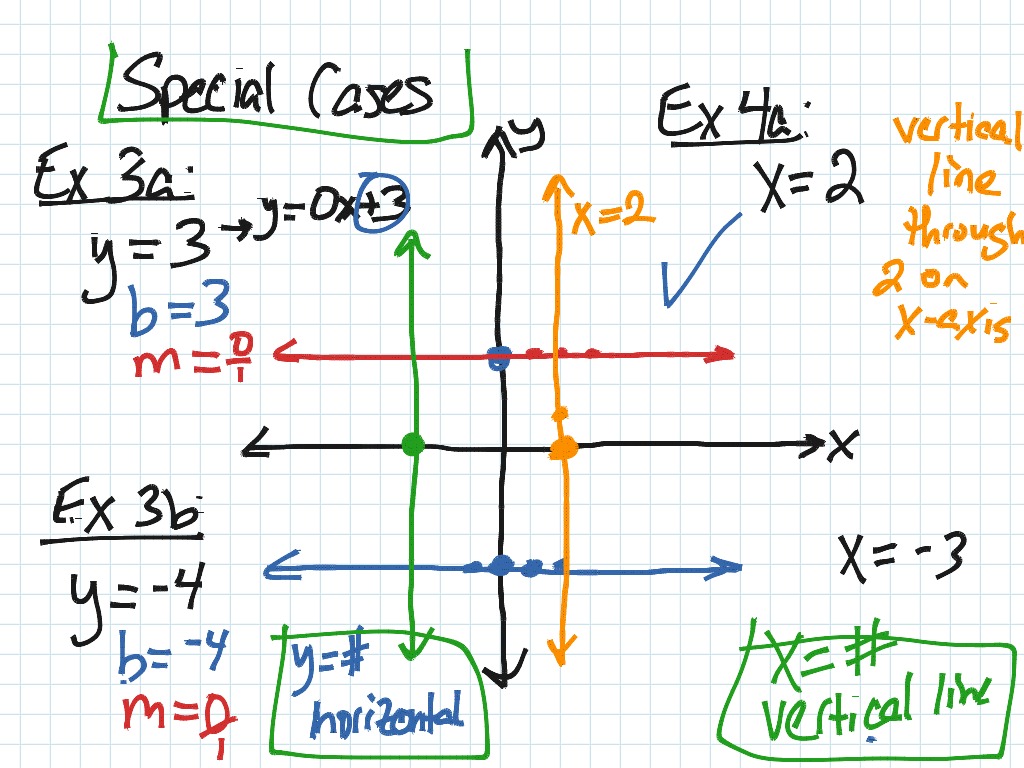 Special Cases
Ex 3a:
y = 3 → y = 0x + 3
b = 3
m = 0/1
y
x
x = 2
Ex 4a:
x = 2
vertical
line
through
2 on
x-axis
Ex 3b
y = -4
b = -4
m = 0/1
y = #
horizontal
x = -3
x = #
vertical line